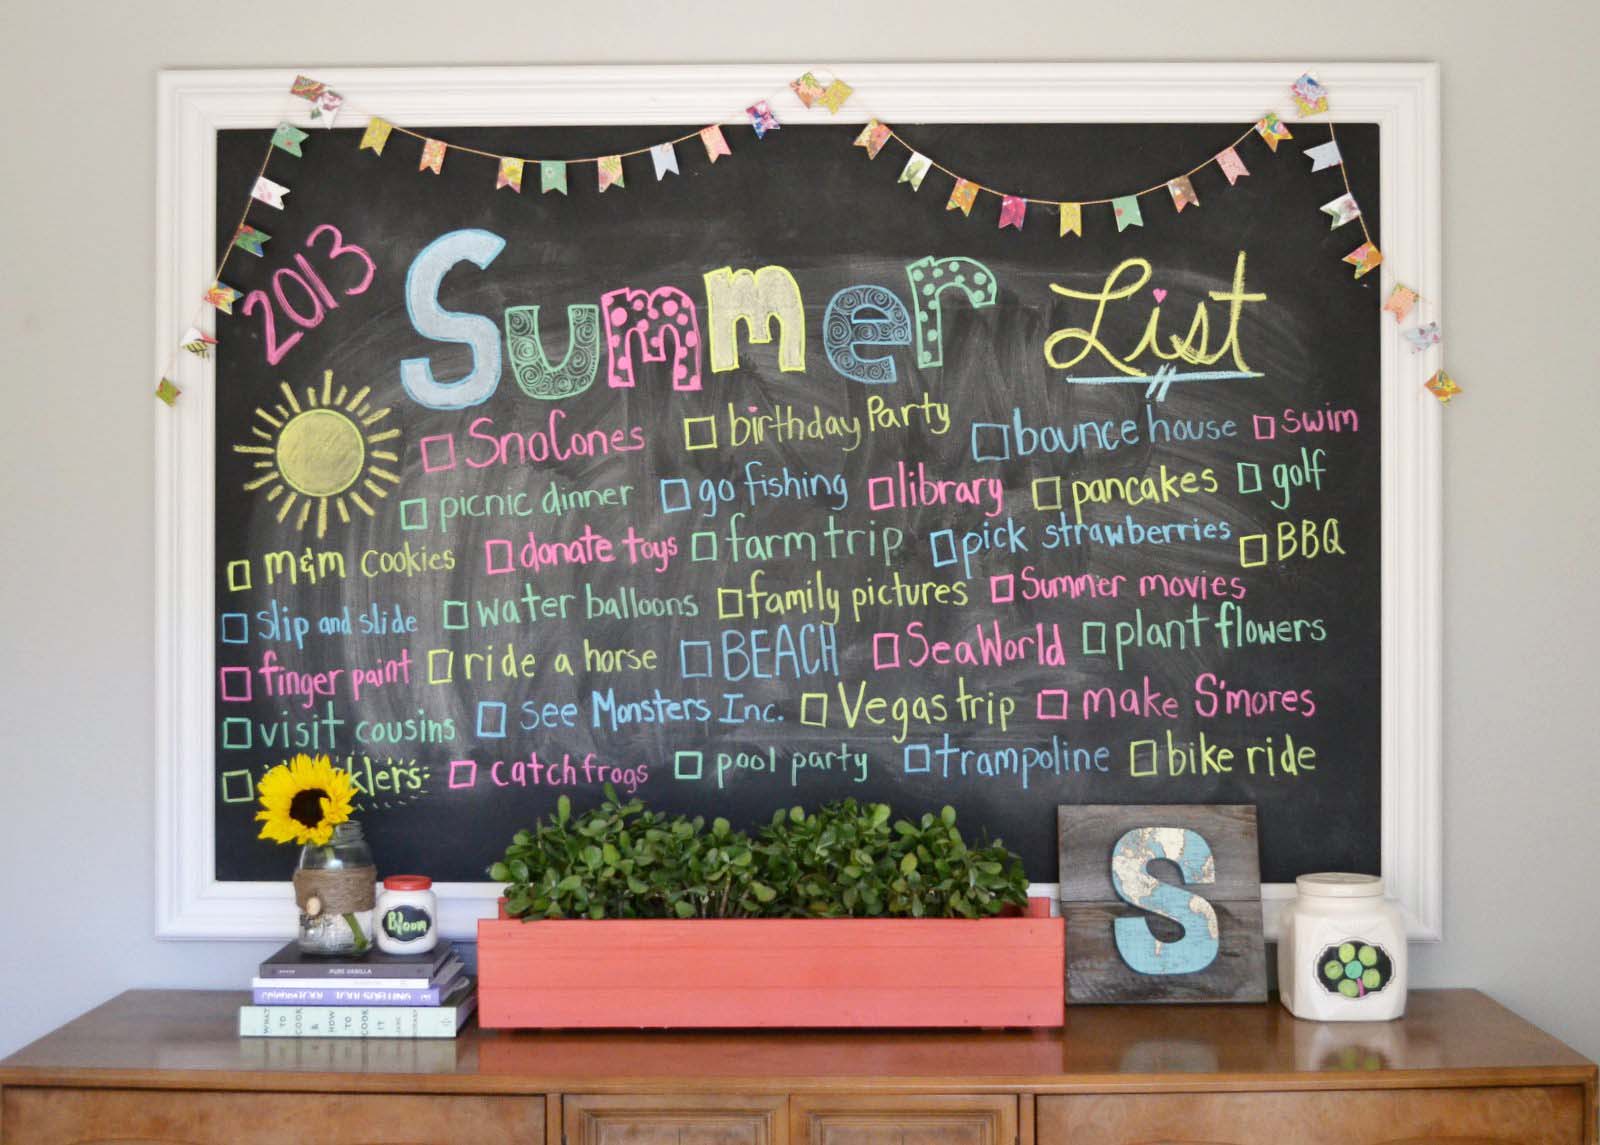 2013 Summer List
SnoCones birthday Party bounce house swim
picnic dinner go fishing library pancakes golf
m&m cookies donate toys farm trip pick strawberries BBQ
slip and slide water balloons family pictures Summer movies
finger paint ride a horse BEACH SeaWorld plant flowers
visit cousins see Monsters Inc. Vegas trip make S'mores
catch frogs pool party trampoline bike ride
Bloom
PURE VANILLA
WHAT TO COOK & HOW TO COOK IT JANE
S